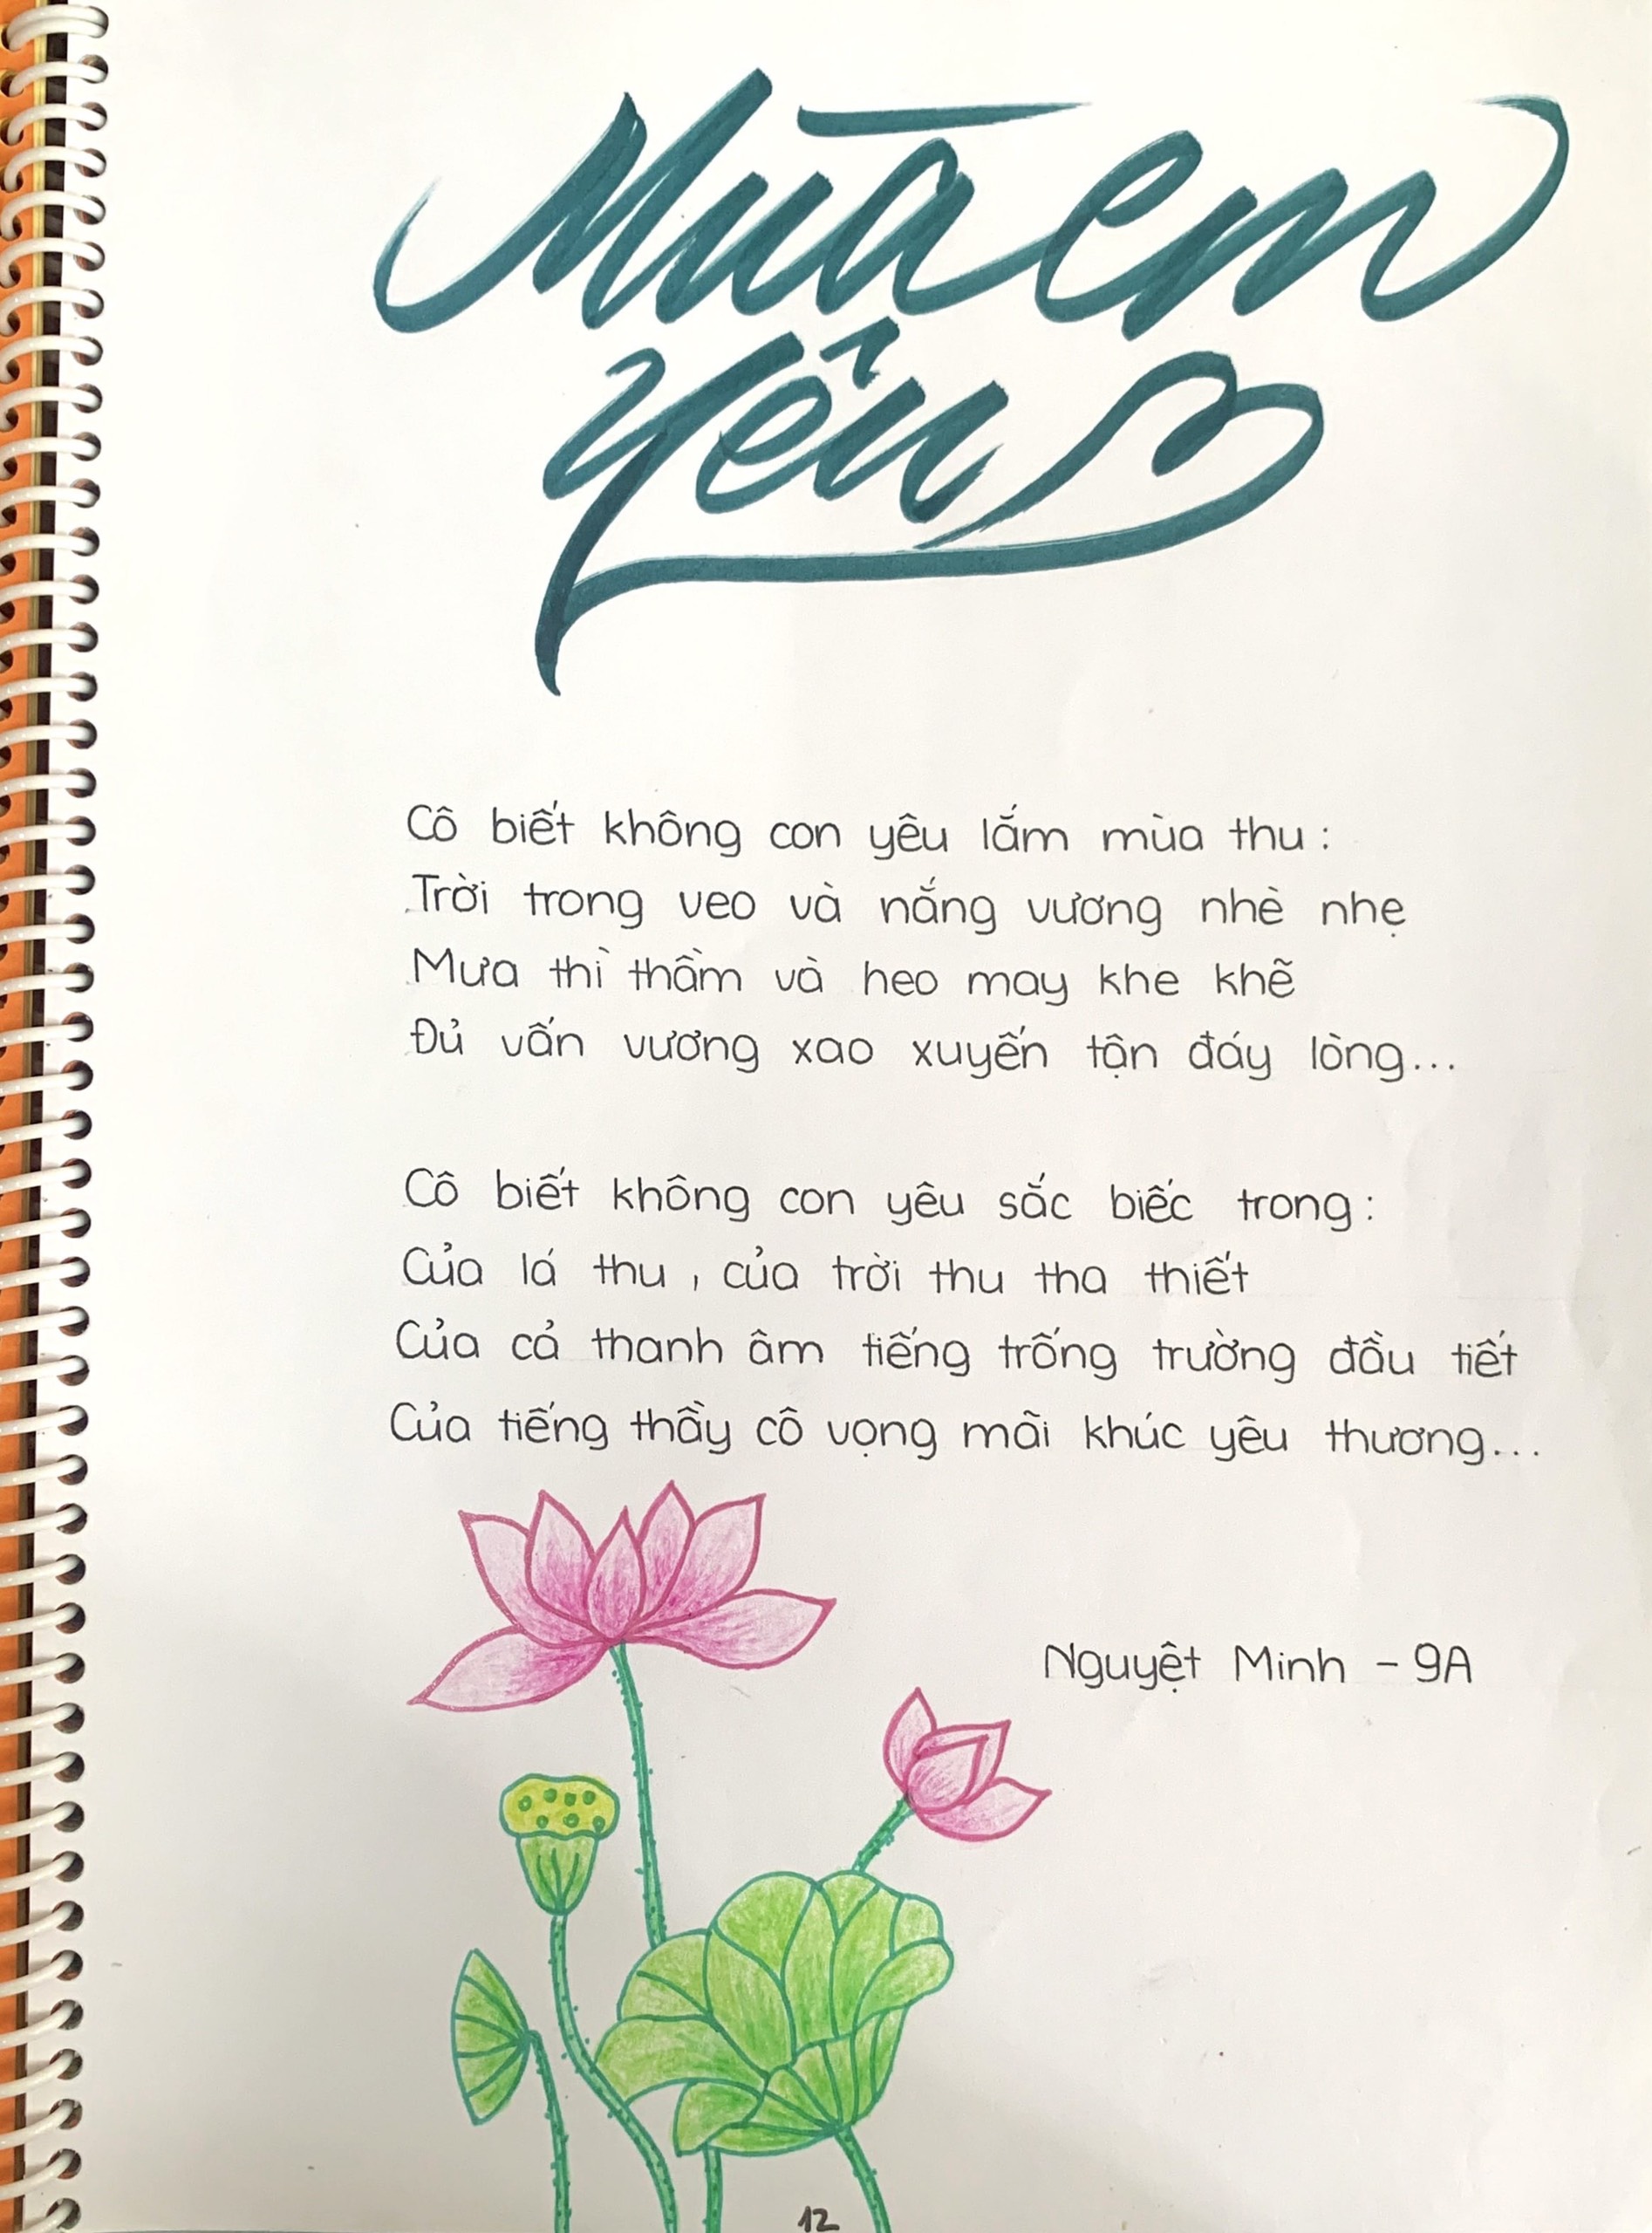 Mùa em
yêu
Cô biết không con yêu lắm mùa thu:
Trời trong veo và nắng vương nhè nhẹ
Mưa thì thầm và heo may khe khẽ
Đủ vấn vương xao xuyến tận đáy lòng...
Cô biết không con yêu sắc biếc trong:
Của lá thu, của trời thu tha thiết
Của cả thanh âm tiếng trống trường đầu tiết
Của tiếng thầy cô vọng mãi khúc yêu thương...
Nguyệt Minh - 9A
12